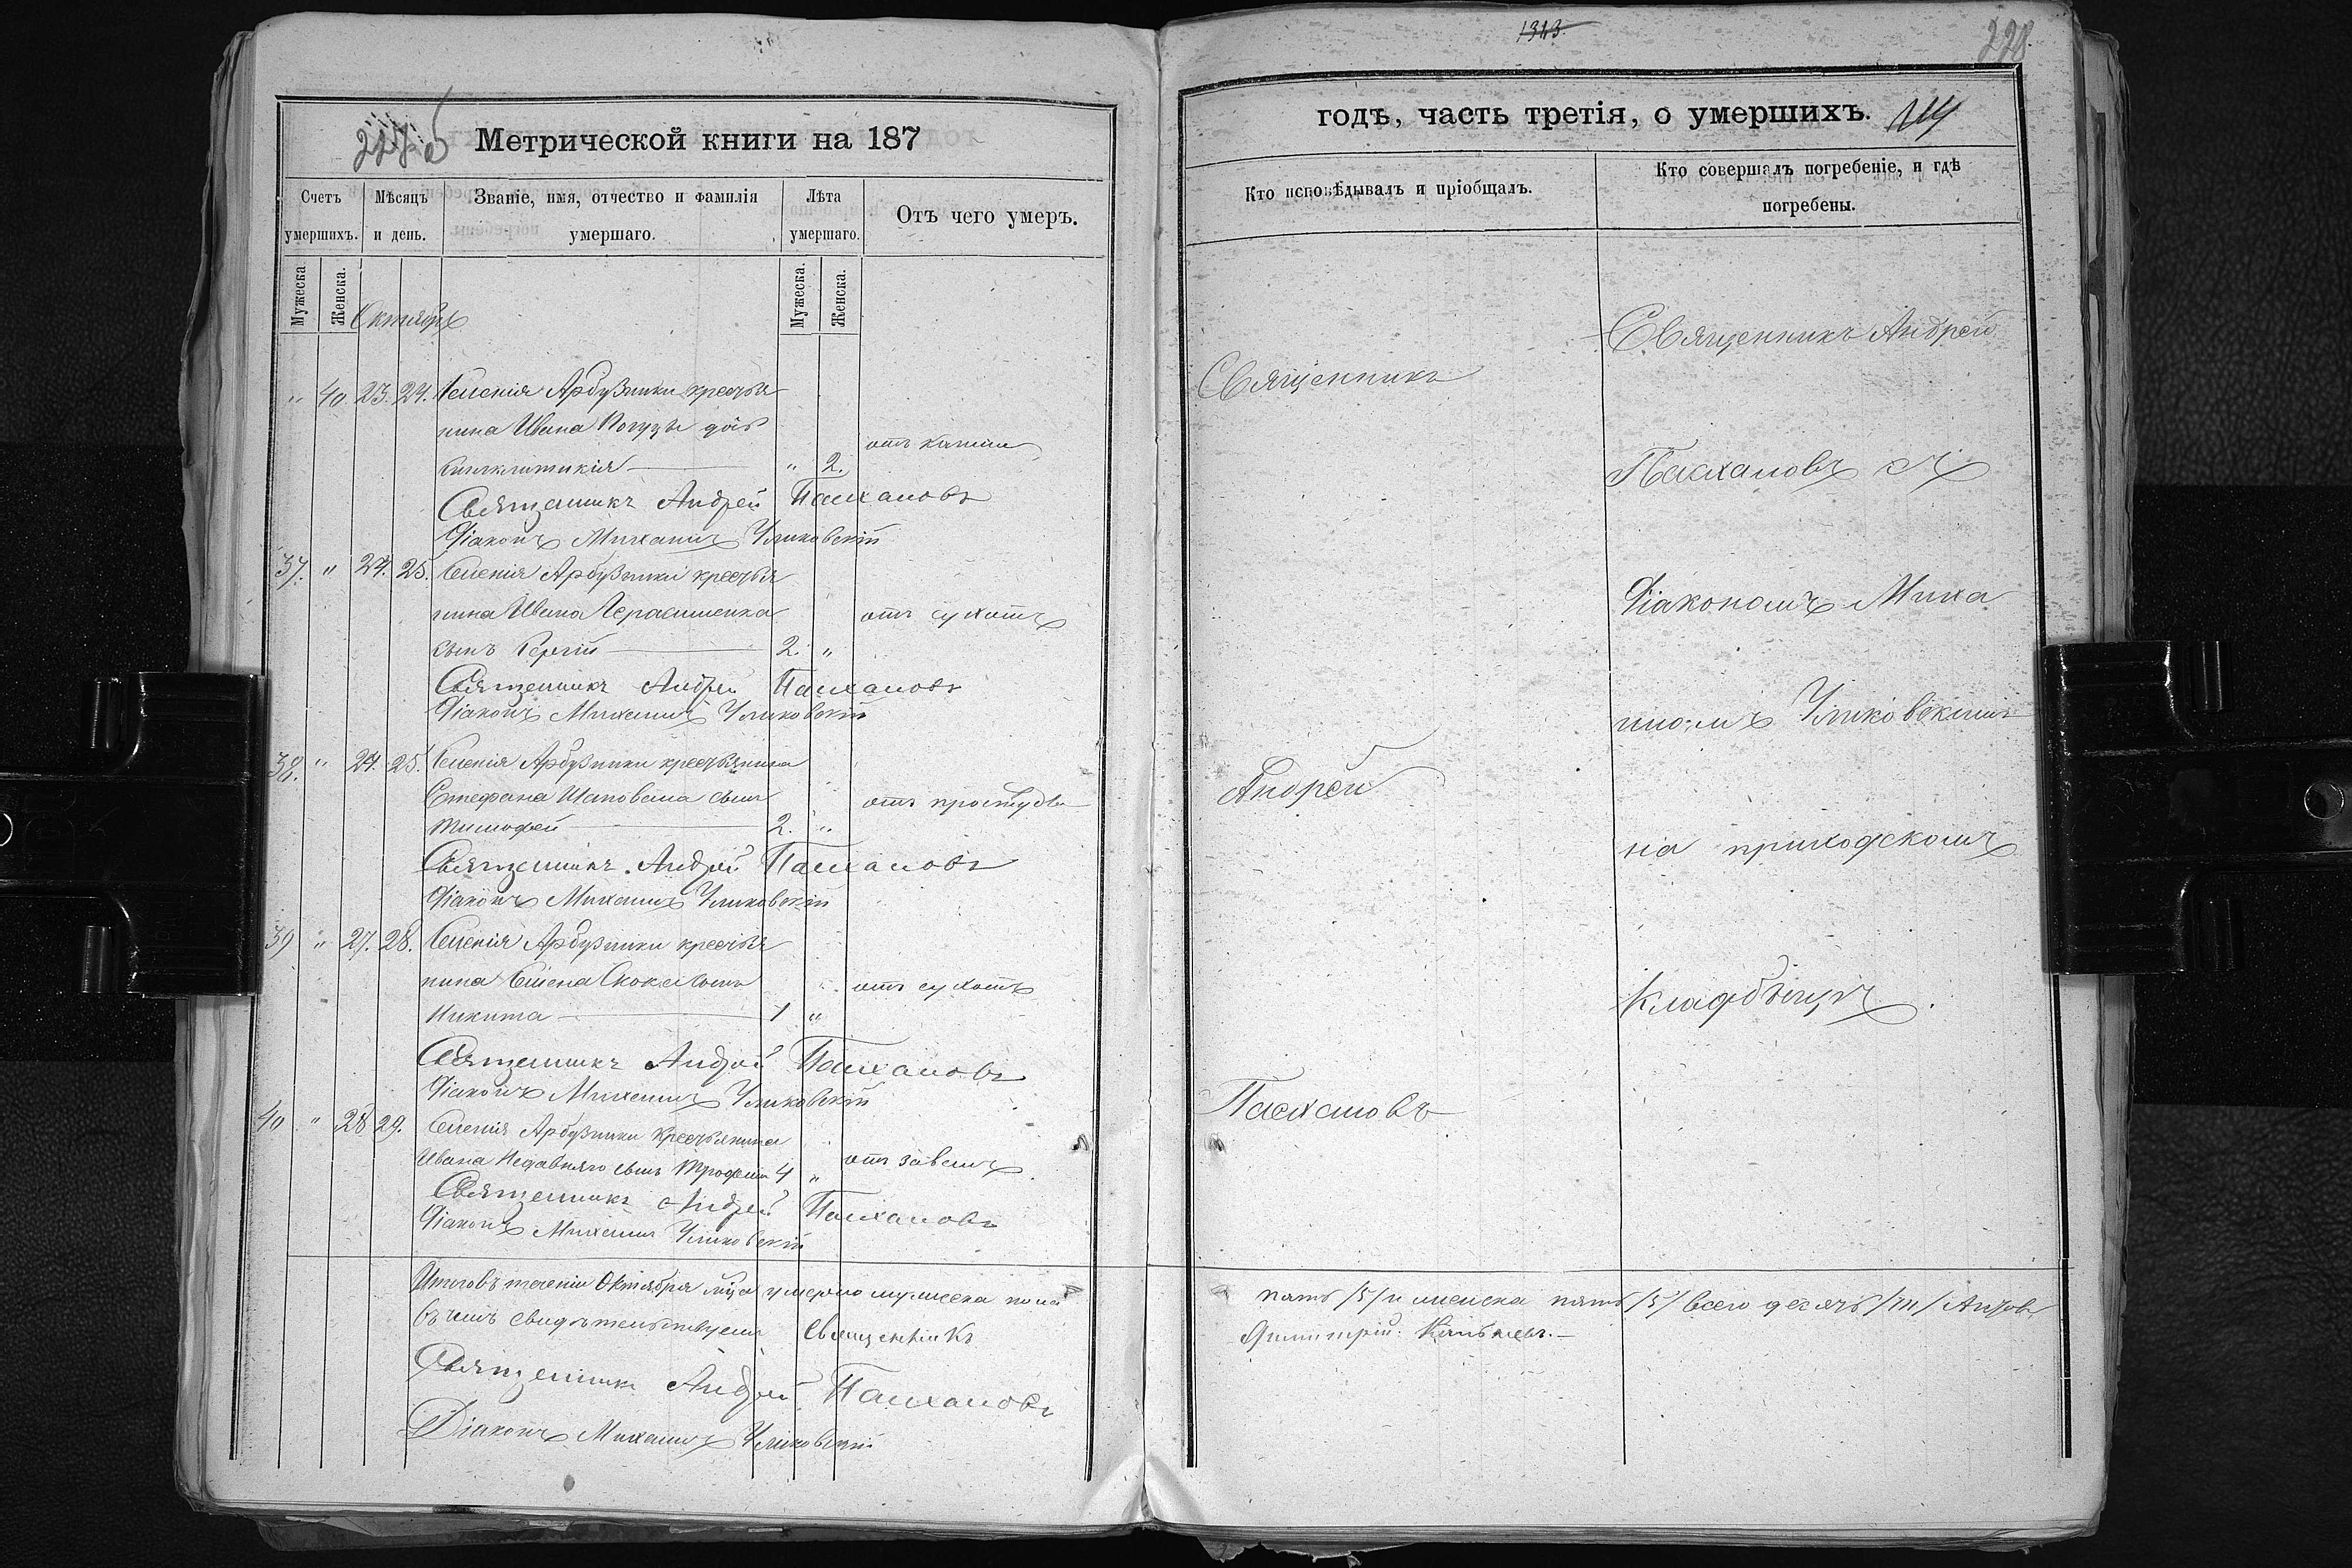 Метрической книги на 187
Счетъ умершихъ.
Мѣсяцъ и день.
Званіе, имя, отчество и фамилія умершаго.
Лѣта умершаго.
Отъ чего умеръ.
Мужеска
Женска.
Мужеска.
Женска.
Октября
" 40 23. 24. Селенія Арбузинки крестья
нина Ивана дочь
" 2.
Священникъ Андрей Пасхаловъ
Діаконъ Михаилъ
37. " 24. 25. Селенія Арбузинки крестья
нина Ивана Герасименка отъ сухотъ
сынъ Сергій 2. "
Священникъ Андрей Пасхаловъ
Діаконъ Михаилъ
38. " 24. 25. Селенія Арбузинки крестьянина
Стефана Шаповала сынъ отъ простуды
Тимофей 2. "
Священникъ Андрей Пасхаловъ
Діаконъ Михаилъ
39 " 27. 28. Селенія Арбузинки крестья
нина сынъ отъ сухотъ
Никита 1 "
Священникъ Андрей Пасхаловъ
Діаконъ Михаилъ
40 " 28 29. Селенія Арбузинки крестьянина
Ивана сынъ 4 "
Священникъ Андрей Пасхаловъ
Діаконъ Михаилъ
Итого въ теченіи Октября умерло мужеска пола
въ чемъ свидѣтельствуемъ Священникъ
Священникъ Андрей Пасхаловъ
Діаконъ Михаилъ
1313
228
годъ, часть третія, о умершихъ.
Кто исповѣдывалъ и пріобщалъ.
Кто совершалъ погребеніе, и гдѣ погребены.
Священникъ
Андрей
Пасхаловъ
Священникъ Андрей
Пасхаловъ съ
Діакономъ Миха
иломъ
на приходскомъ
кладбищѣ.
пять /5/ и женска пять /5/ всего десять /10/
Димитрій